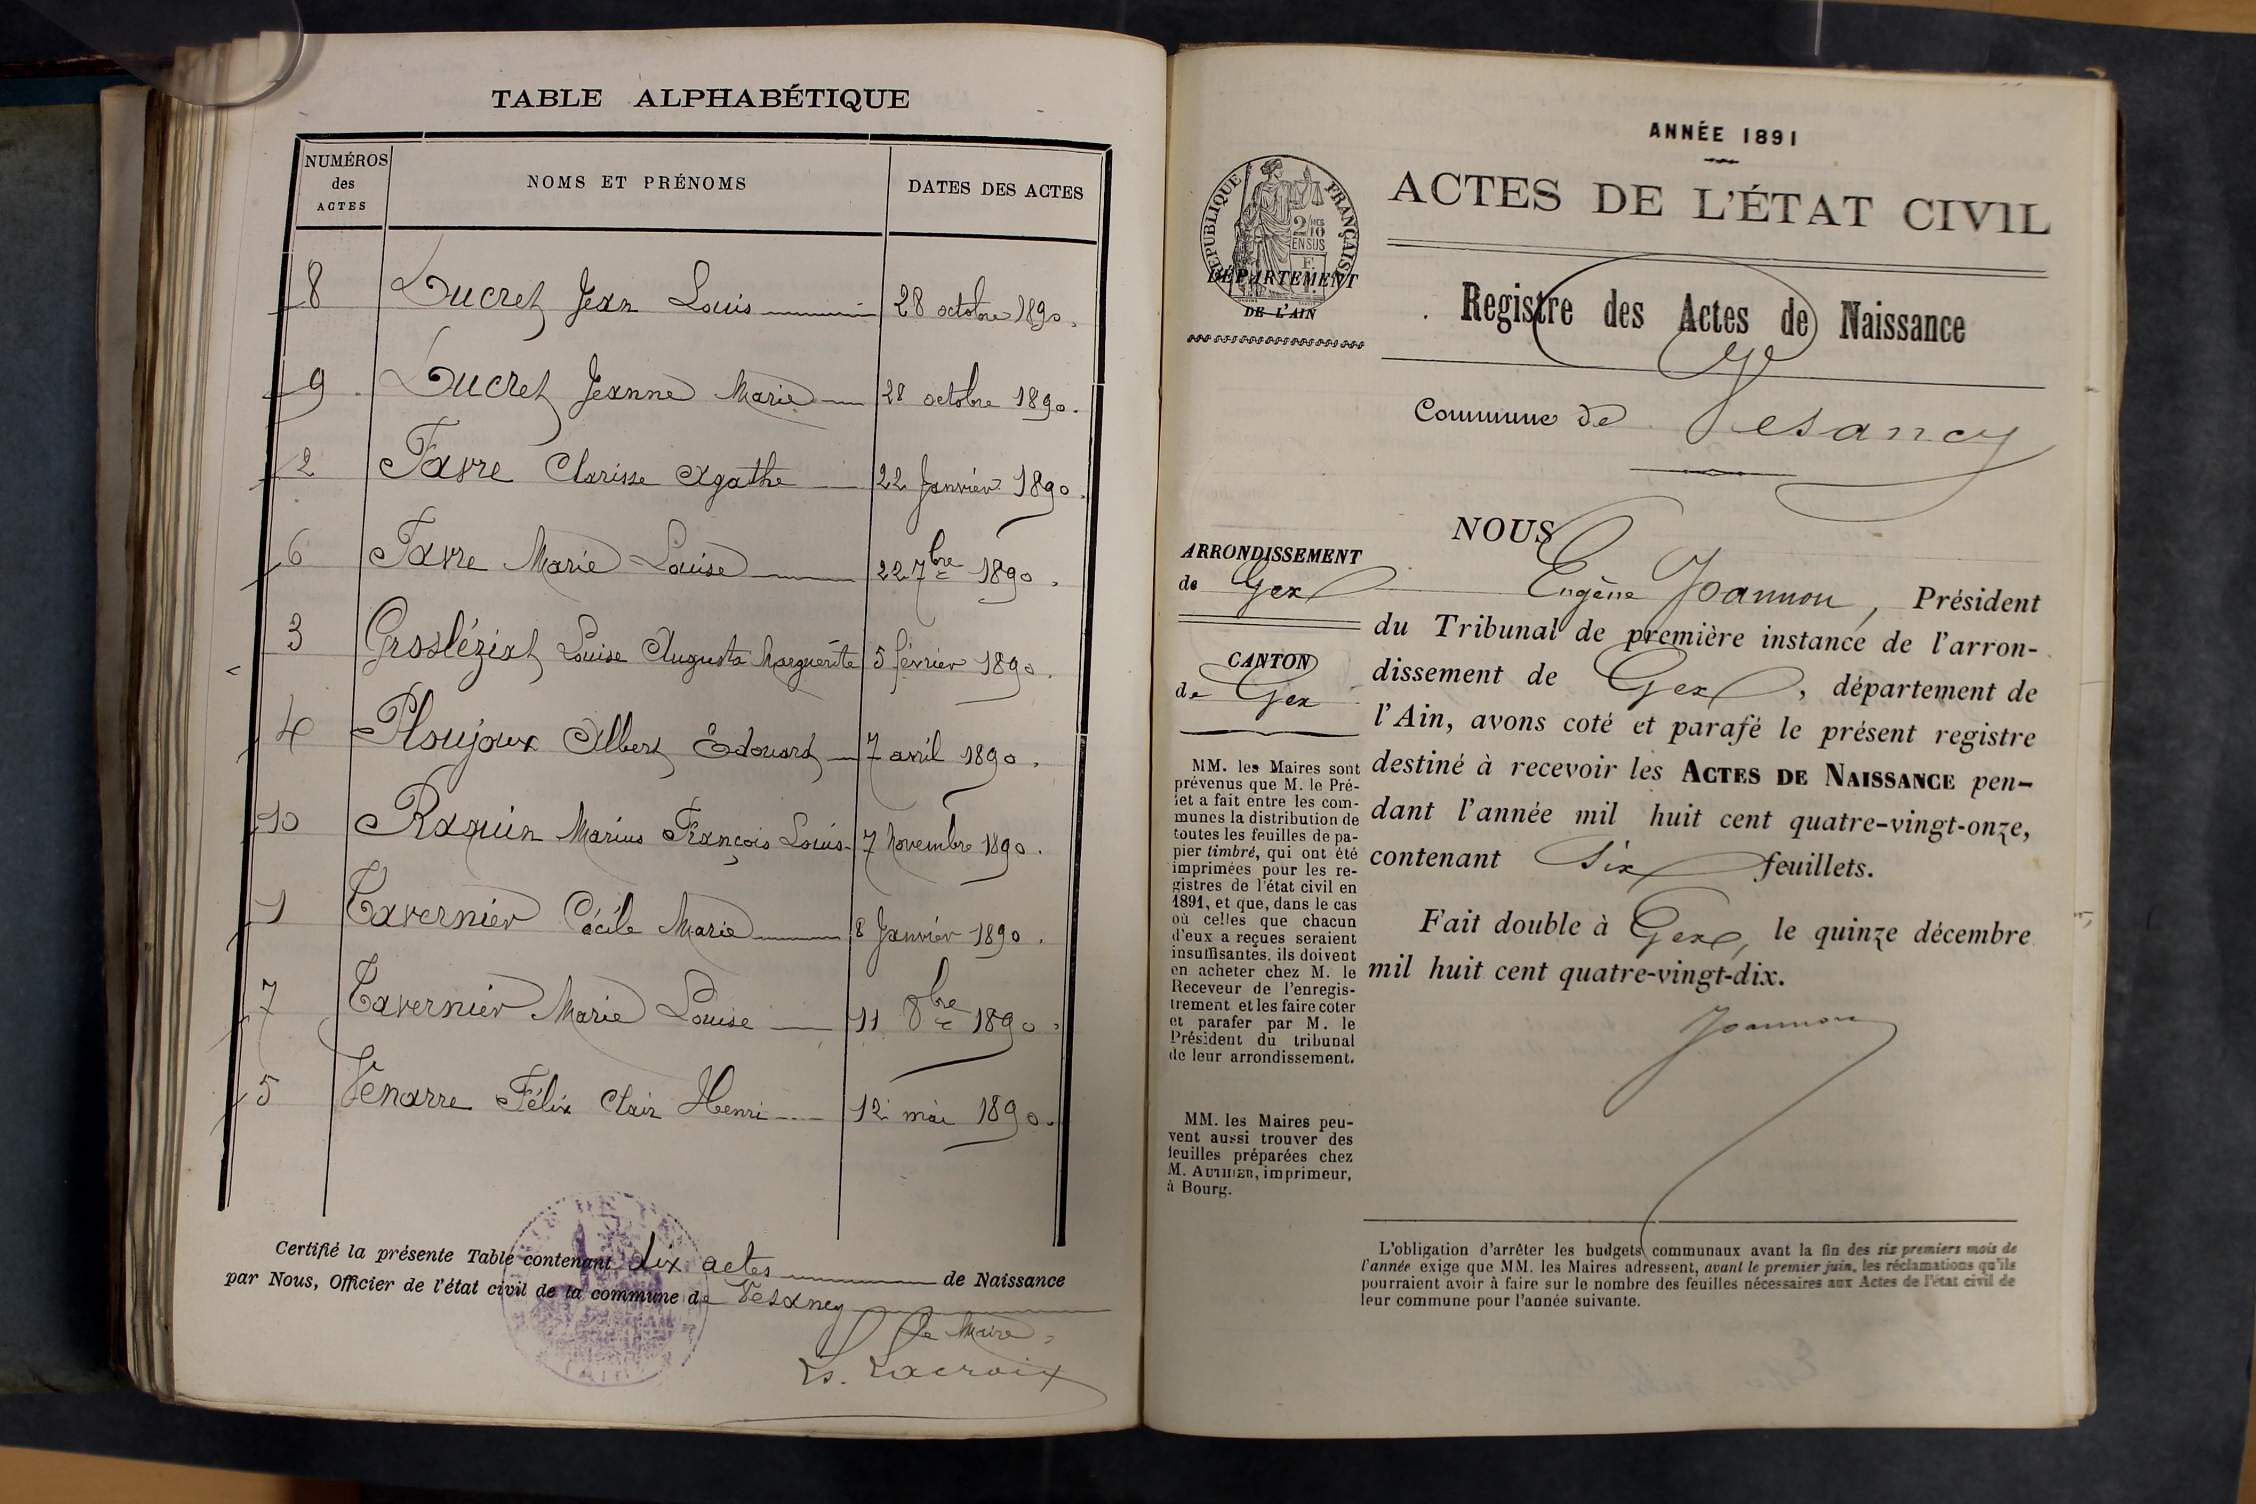 TABLE ALPHABÉTIQUE
NUMÉROS des ACTES NOMS ET PRÉNOMS DATES DES ACTES
8 Ducret Jean Louis 28 octobre 1890.
9 Ducret Jeanne Marie 28 octobre 1890.
2 Favre Clarisse Agathe 22 Janvier 1890.
6 Favre Marie Louise 22 7bre 1890.
3 Grosléziat Louise Augusta Marguerite 5 février 1890.
4 Ploujoux Albert Edouard 7 avril 1890.
10 Raquin Marius François Louis 7 Novembre 1890.
1 Tavernier Cécile Marie 8 Janvier 1890.
7 Tavernier Marie Louise 11 8bre 1890.
5 Venarre Félix Clair Henri 12 mai 1890.
Certifié la présente Table contenant dix actes de Naissance
par Nous, Officier de l'état civil de la commune de Vesancy
Le Maire,
Ls. Lacroix
ANNÉE 1891
ACTES DE L'ÉTAT CIVIL
RÉPUBLIQUE FRANÇAISE
2/10
EN SUS
DÉPARTEMENT
DE L'AIN
Registre des Actes de Naissance
Commune de Vesancy
ARRONDISSEMENT
de Gex
CANTON
de Gex
MM. les Maires sont
prévenus que M. le Pré-
fet a fait entre les com-
munes la distribution de
toutes les feuilles de pa-
pier timbré, qui ont été
imprimées pour les re-
gistres de l'état civil en
1891, et que, dans le cas
où celles que chacun
d'eux a reçues seraient
insuffisantes, ils doivent
en acheter chez M. le
Receveur de l'enregis-
trement et les faire coter
et parafer par M. le
Président du tribunal
de leur arrondissement.
MM. les Maires peu-
vent aussi trouver des
feuilles préparées chez
M. AUTHIER, imprimeur,
à Bourg.
NOUS
Eugène Joannon, Président
du Tribunal de première instance de l'arron-
dissement de Gex, département de
l'Ain, avons coté et parafé le présent registre
destiné à recevoir les ACTES DE NAISSANCE pen-
dant l'année mil huit cent quatre-vingt-onze,
contenant Six feuillets.
Fait double à Gex, le quinze décembre
mil huit cent quatre-vingt-dix.
Joannon
L'obligation d'arrêter les budgets communaux avant la fin des six premiers mois de
l'année exige que MM. les Maires adressent, avant le premier juin, les réclamations qu'ils
pourraient avoir à faire sur le nombre des feuilles nécessaires aux Actes de l'état civil de
leur commune pour l'année suivante.